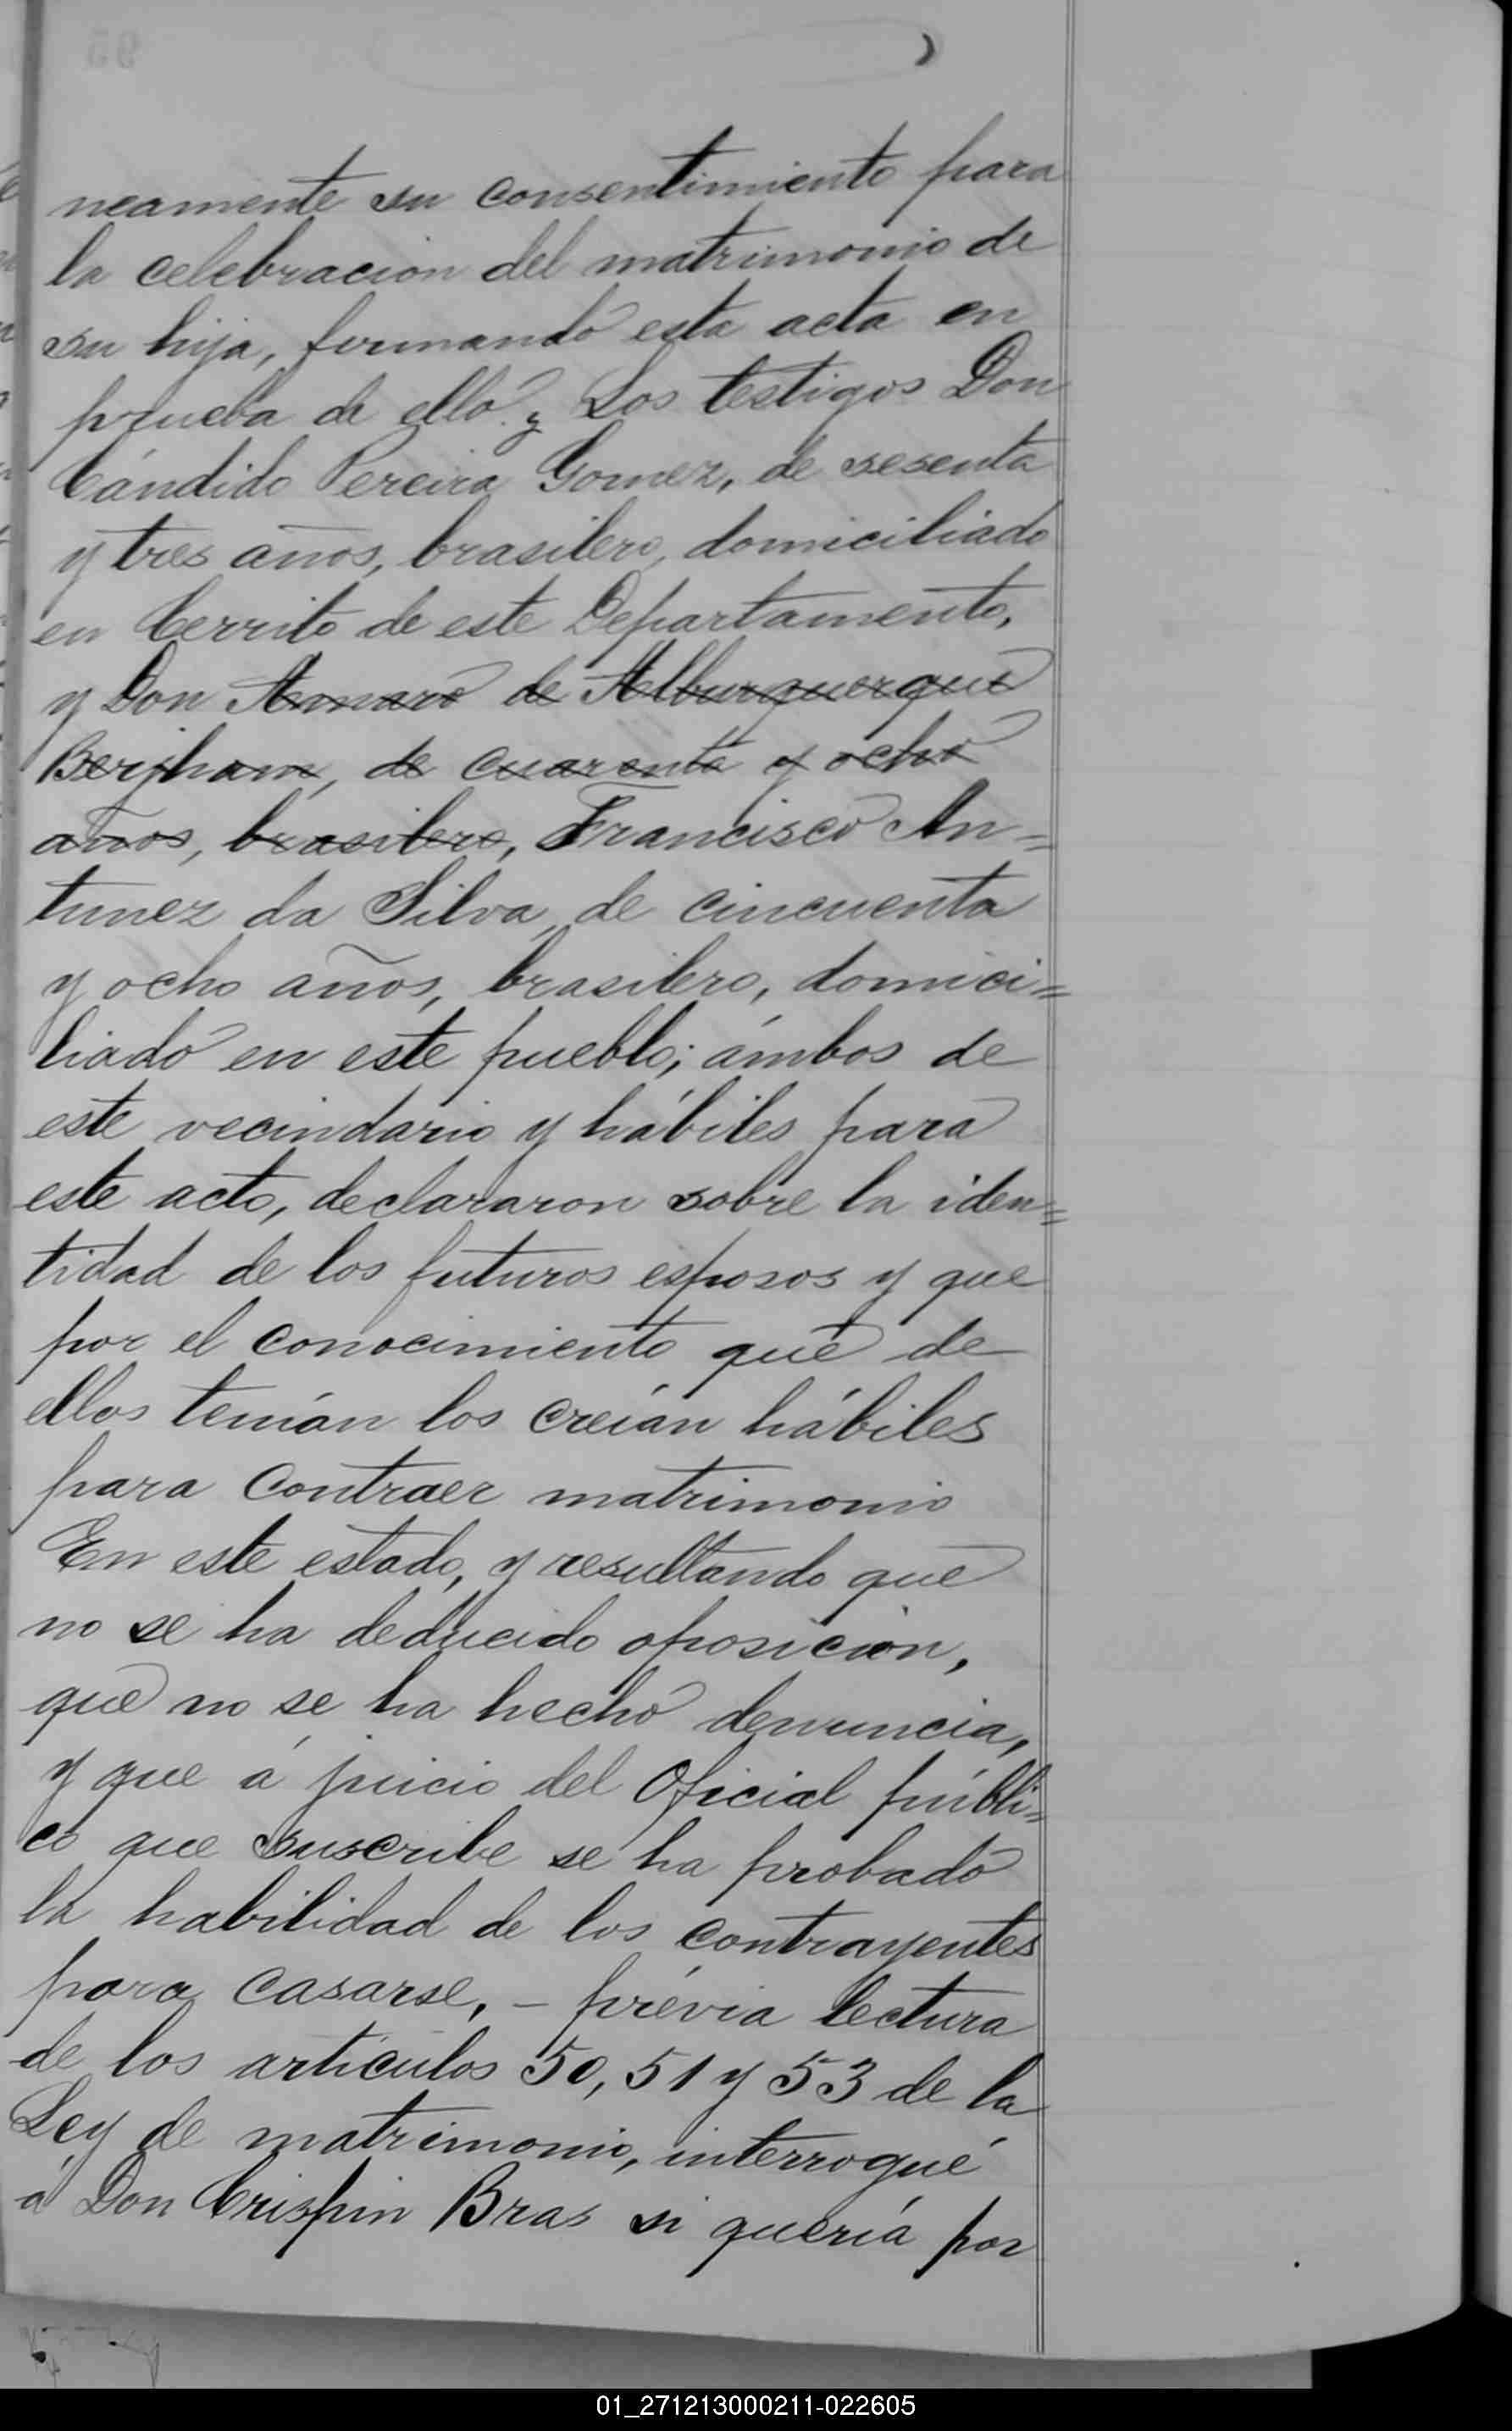 neamente su consentimiento para
la celebracion del matrimonio de
su hija, firmando esta acta en
prueba de ello. y Los testigos Don
Cándido Pereira Gomez, de sesenta
y tres años, brasilero, domiciliado
en Cerrito de este Departamento,
y Don Amaro de Alburquerque
Berjham, de cuarenta y ocho
años, brasilero, Francisco An=
tunez da Silva, de cincuenta
y ocho años, brasilero, domici=
liado en este pueblo; ámbos de
este vecindario y hábiles para
este acto, declararon sobre la iden=
tidad de los futuros esposos y que
por el conocimiento que de
ellos tenían los creían hábiles
para contraer matrimonio
En este estado, y resultando que
no se ha deducido oposicion,
que no se ha hecho denuncia,
y que á juicio del Oficial públi=
co que suscribe se ha probado
la habilidad de los contrayentes
para casarse, – prévia lectura
de los artículos 50, 51 y 53 de la
Ley de matrimonio, interrogué
á Don Crispin Bras si quería por
01_271213000211-022605